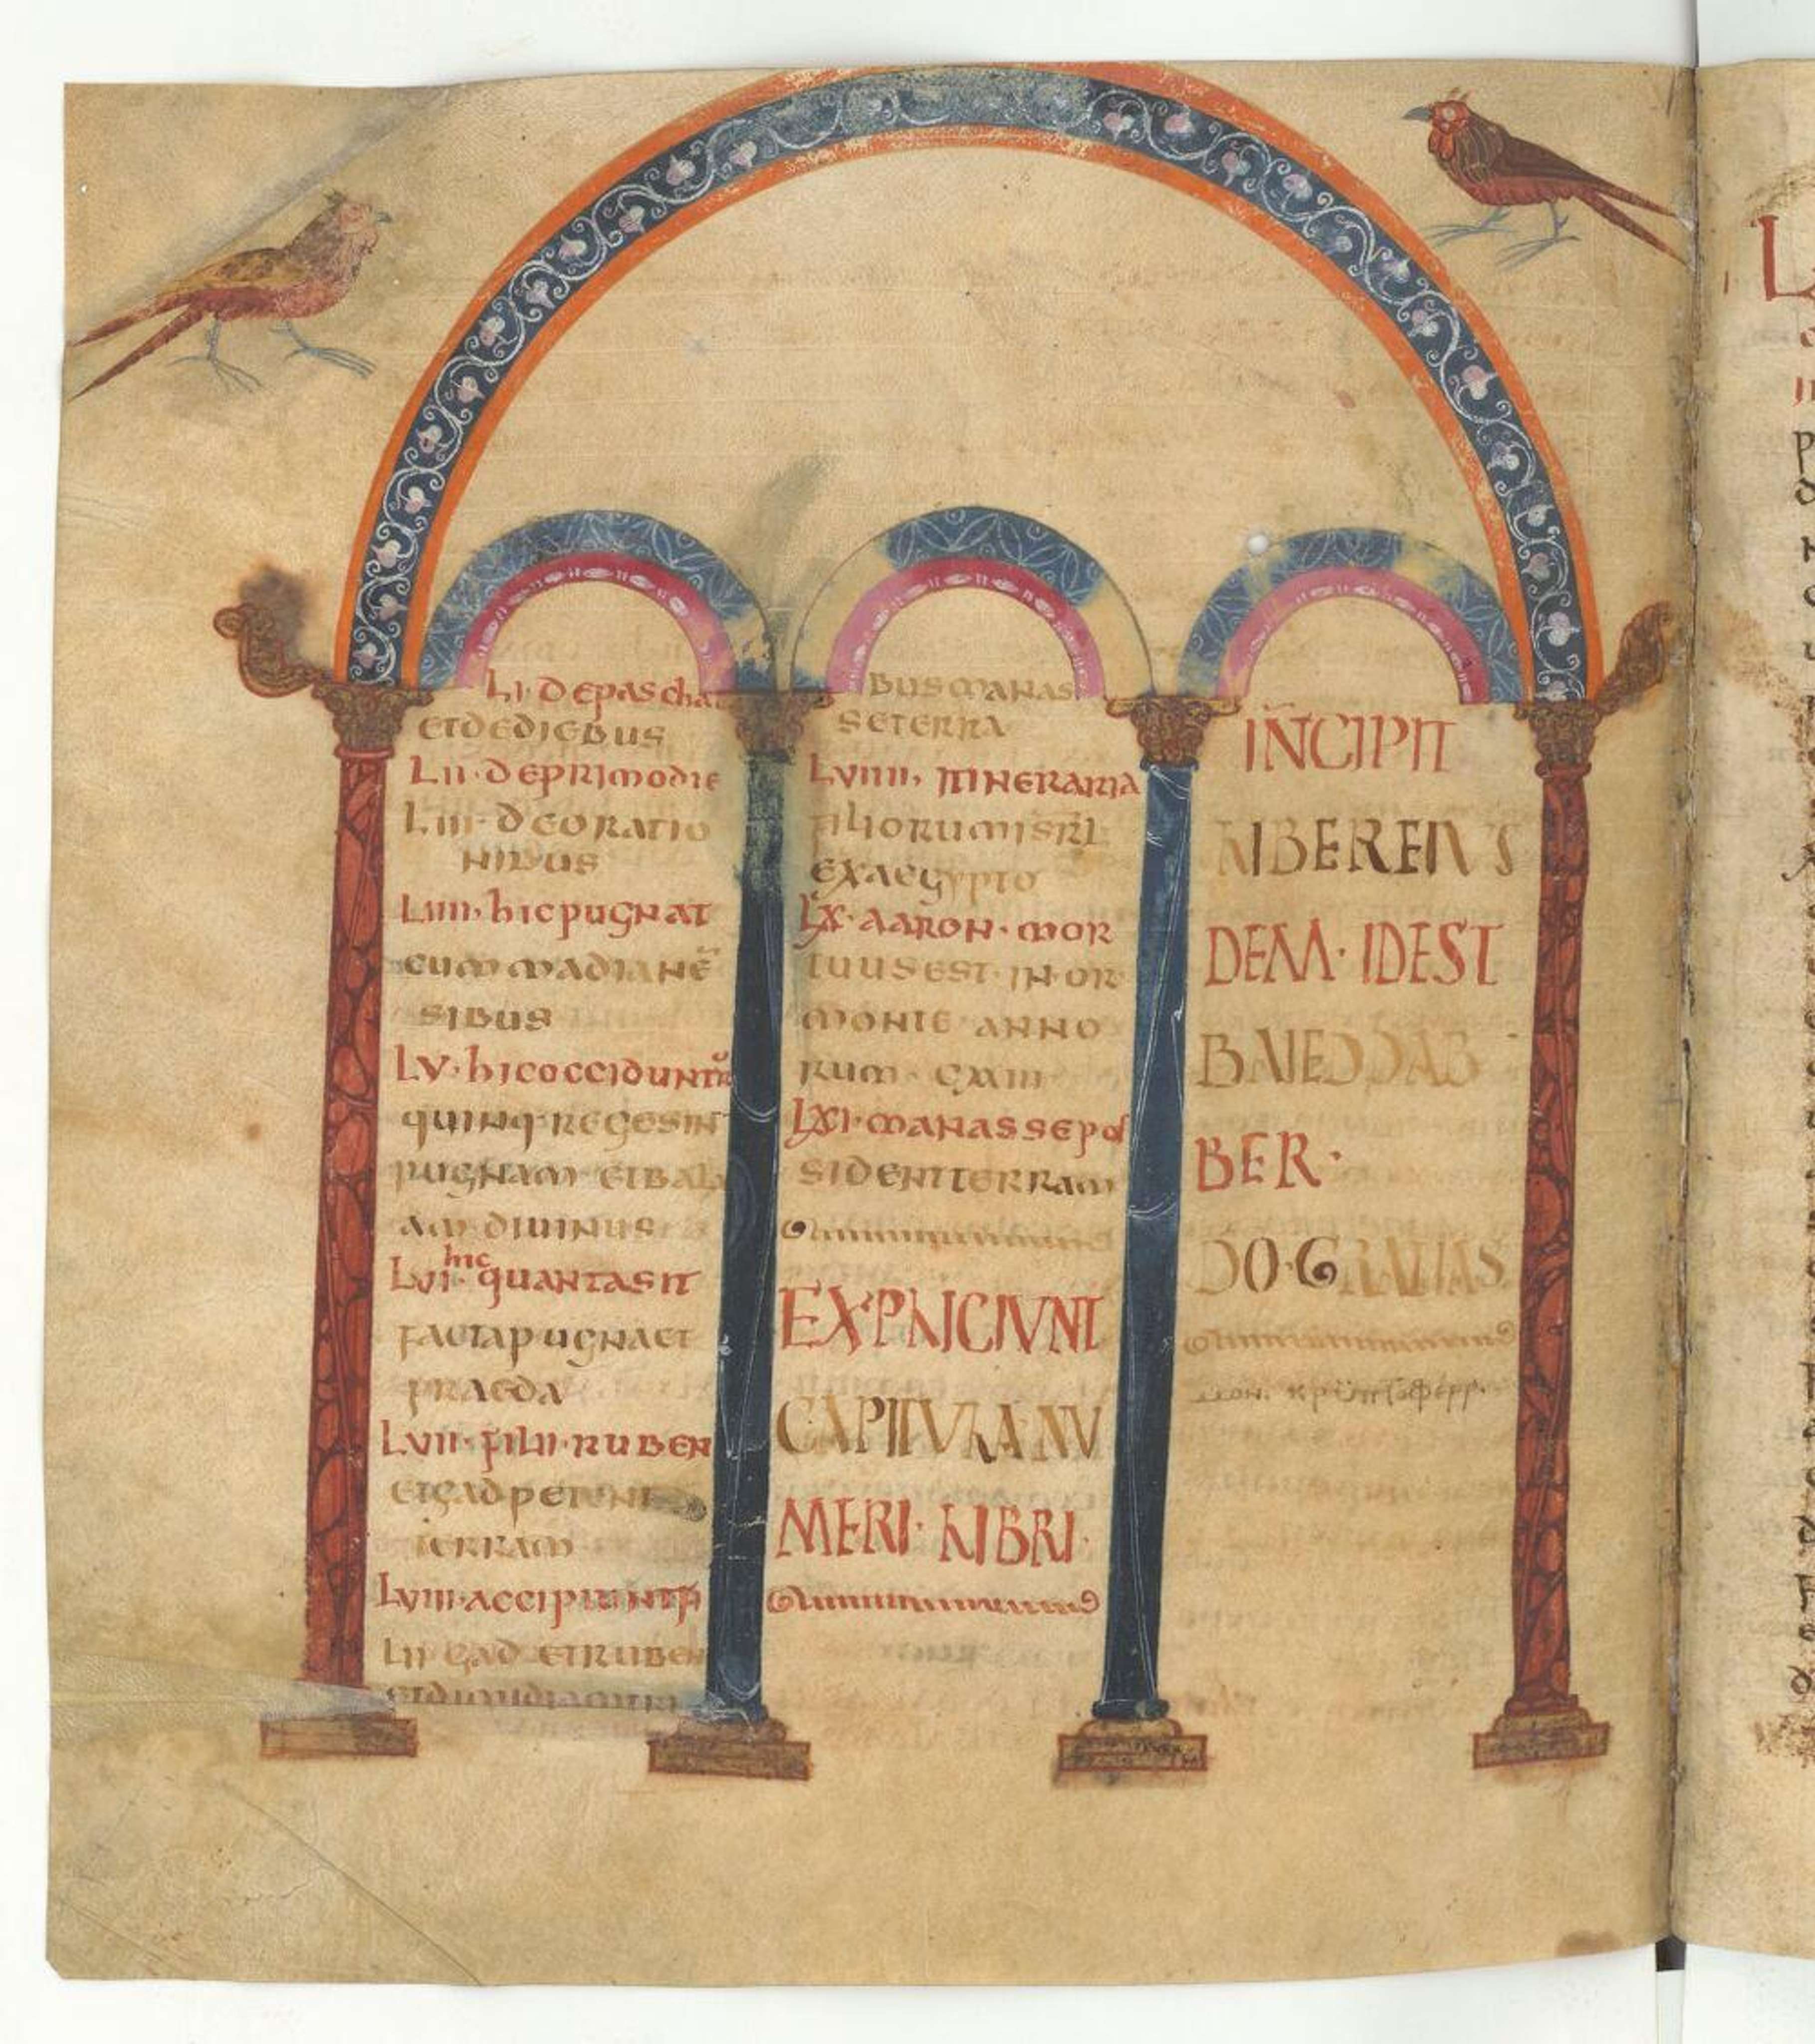 LI · depascha
etdediebus
LII · deprimodie
LIII · deoratio
nibus
LIIII · hicpugnat
cummadianē
sibus
LV · hicoccidunt
quinq · regesin
pugnam · etbala
am · diuinus
LVI · hic quantasit
factapugnaet
praeda
LVII · filii · ruben
etgadpetunt
terram
LVIII · accipiunt
gad etruben
etdimidiam
busmanas
seterra
LVIIII · itineraria
filiorumisrl
exaegypto
LX · aaron · mor
tuusest · in · or
monte · anno
rum · CXXIII
LXI · manassepos
sidentterram
EXPLICIUNT
CAPITULA NU
MERI · LIBRI ·
INCIPIT
LIBER EIUS
DEM · IDEST
BAIEDDAB
BER ·
DO · GRATIAS
μον. κρυπτοφερρ.